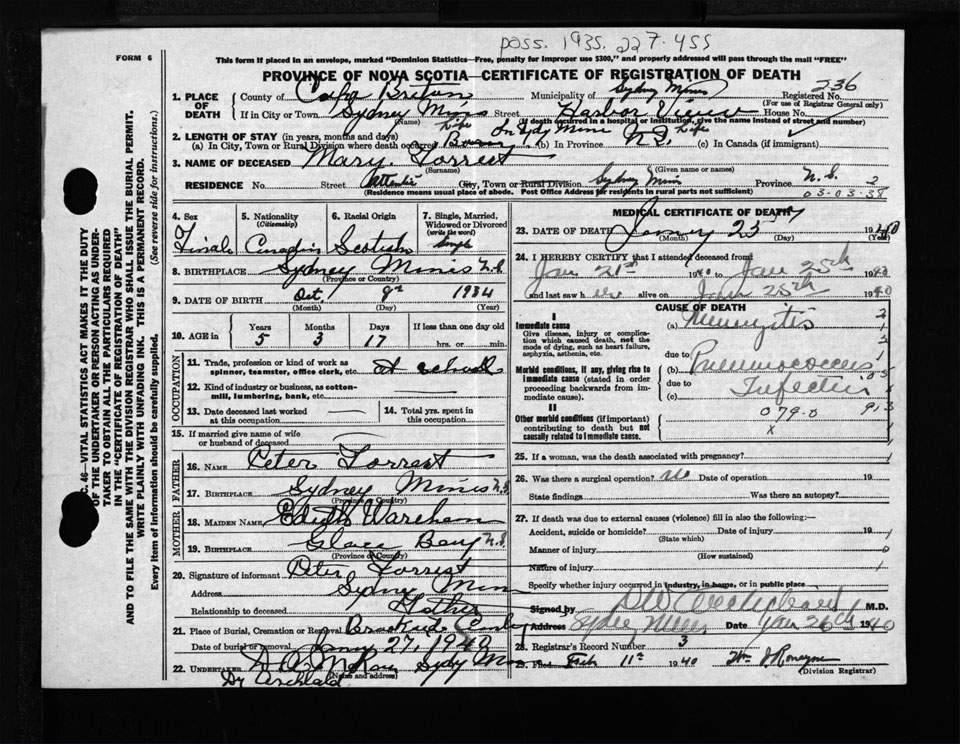 pass. 1935. 227.455
FORM 6
This form if placed in an envelope, marked "Dominion Statistics—Free, penalty for improper use $300," and properly addressed will pass through the mail "FREE"
PROVINCE OF NOVA SCOTIA—CERTIFICATE OF REGISTRATION OF DEATH
236
1. PLACE OF DEATH
County of Cape Breton Municipality of Sydney Mines Registered No.
(For use of Registrar General only)
If in City or Town Sydney Mines Street Harbor View House No.
(Name) (If death occurred in a hospital or institution, give the name instead of street and number)
2. LENGTH OF STAY (in years, months and days)
(a) In City, Town or Rural Division where death occurred Life (b) In Province N.S. Life (c) In Canada (if immigrant)
3. NAME OF DECEASED Mary Forrest
(Surname) (Given name or names)
RESIDENCE No. Street City, Town or Rural Division Sydney Mines Province N.S. 2
(Residence means usual place of abode. Post Office Address for residents in rural parts not sufficient) 03-03-38
4. Sex
5. Nationality
(Citizenship)
6. Racial Origin
7. Single, Married, Widowed or Divorced
(write the word)
Female Canadian Scotish Single
8. BIRTHPLACE Sydney Mines N.S.
(Province or Country)
9. DATE OF BIRTH Oct. 9th 1934
(Month) (Day) (Year)
10. AGE in Years Months Days If less than one day old
5 3 17 hrs. or min.
OCCUPATION
11. Trade, profession or kind of work as spinner, teamster, office clerk, etc. at school
12. Kind of industry or business, as cotton-mill, lumbering, bank, etc.
13. Date deceased last worked at this occupation
14. Total yrs. spent in this occupation
15. If married give name of wife or husband of deceased
FATHER
16. NAME Peter Forrest
17. BIRTHPLACE Sydney Mines N.S.
(Province or Country)
MOTHER
18. MAIDEN NAME Edith Wareham
19. BIRTHPLACE Glace Bay N.S.
(Province or Country)
20. Signature of informant Peter Forrest
Address Sydney Mines
Relationship to deceased Father
21. Place of Burial, Cremation or Removal Brookside
Date of burial or removal Jany 27, 1940
22. UNDERTAKER Sydney Mines
(Name and address)
Dr Archibald
MEDICAL CERTIFICATE OF DEATH
23. DATE OF DEATH January 25 1940
(Month) (Day) (Year)
24. I HEREBY CERTIFY that I attended deceased from:
Jan 21st 1940 to Jan 25th 1940
and last saw her alive on Jan 25th 1940
CAUSE OF DEATH
I
Immediate cause
Give disease, injury or complication which caused death, not the mode of dying, such as heart failure, asphyxia, asthenia, etc.
(a) Meningitis
due to
Morbid conditions, if any, giving rise to immediate cause (stated in order proceeding backwards from immediate cause).
(b) Pneumococcus
due to
(c) Infection
II
Other morbid conditions (if important) contributing to death but not causally related to immediate cause.
079-0
x
25. If a woman, was the death associated with pregnancy?
26. Was there a surgical operation? No Date of operation 19
State findings Was there an autopsy?
27. If death was due to external causes (violence) fill in also the following:—
Accident, suicide or homicide? Date of injury 19
(State which)
Manner of injury
(How sustained)
Nature of injury
Specify whether injury occurred in industry, in home, or in public place
Signed by Archibald M.D.
Address Sydney Mines Date Jan 26th 1940
28. Registrar's Record Number 3
29. Filed Feb 11th 1940 Wm J Ronayne
(Division Registrar)
C. 46—VITAL STATISTICS ACT MAKES IT THE DUTY
OF THE UNDERTAKER OR PERSON ACTING AS UNDER-
TAKER TO OBTAIN ALL THE PARTICULARS REQUIRED
IN THE "CERTIFICATE OF REGISTRATION OF DEATH"
AND TO FILE THE SAME WITH THE DIVISION REGISTRAR WHO SHALL ISSUE THE BURIAL PERMIT.
WRITE PLAINLY WITH UNFADING INK. THIS IS A PERMANENT RECORD.
Every item of information should be carefully supplied. (See reverse side for instructions.)